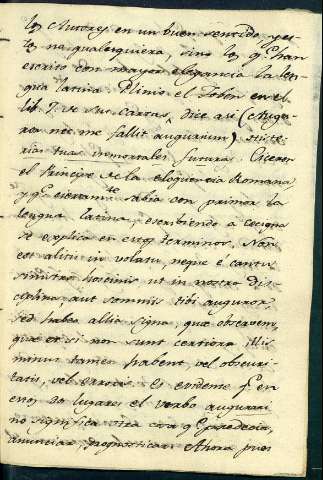 los Autores en un buen sentido, y es-
tos no qualesquiera, sino los q.e han
escrito con mayor elegancia la len-
gua latina. Plinio el Joben en el
lib. 7. de sus Cartas, dice asi (Augu-
ror nec me fallit augurium) histo-
rias tuas inmortales futuras. Ciceron
el Principe de la eloquencia Romana
y q.e ciertam.te sabia con primor la
lengua latina, escribiendo a Cecigna
se explica en estos terminos. Non
est alitis in volatu, neque é cantu
sinistro hoscinis ut in nostra dis-
ciplina, aut somniis tibi auguror,
sed habeo allia signa, quæ observem,
quæ et si non sunt certiora his
minus tamen habent, vel obscuri-
tatis, vel erroris. Es evidente q.e en
estos dos lugares el verbo augurari
no significa otra cosa q.e predecir,
anunciar, prognosticar. Ahora pues